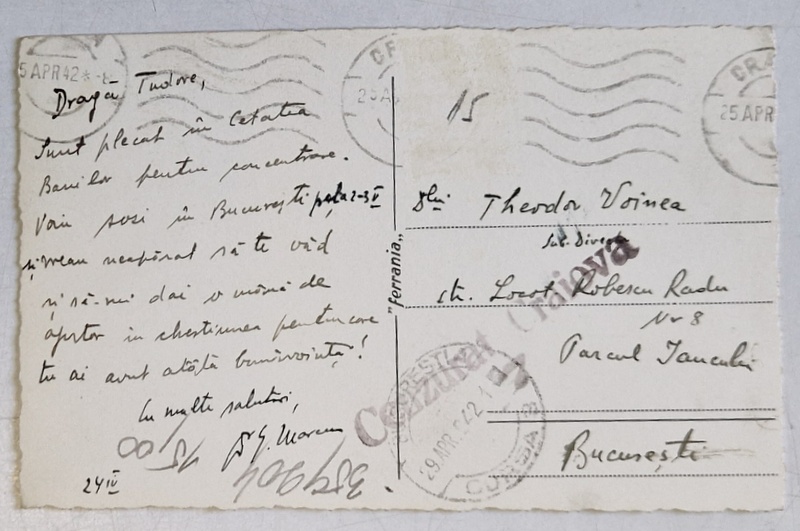 5 APR 42
Dragă Tudore,
Sunt plecat în Cetatea
Banilor pentru concentrare.
Voiu sosi în București pela 2-3 V
și vreau neapărat să te văd
și să-mi dai o mână de
ajutor in chestiunea pentru care
tu ai avut atâta bunăvoință!
Cu multe salutări,
Dr G.
24 IV
15 00
„ferrania„
25 APR
15
Dlui Theodor Voinea
Sub. director
str. Locot. Robescu Radu
Nr 8
Parcul Iancului
București
Cenzurat Craiova
BUCUREȘTI
29 APR. 942